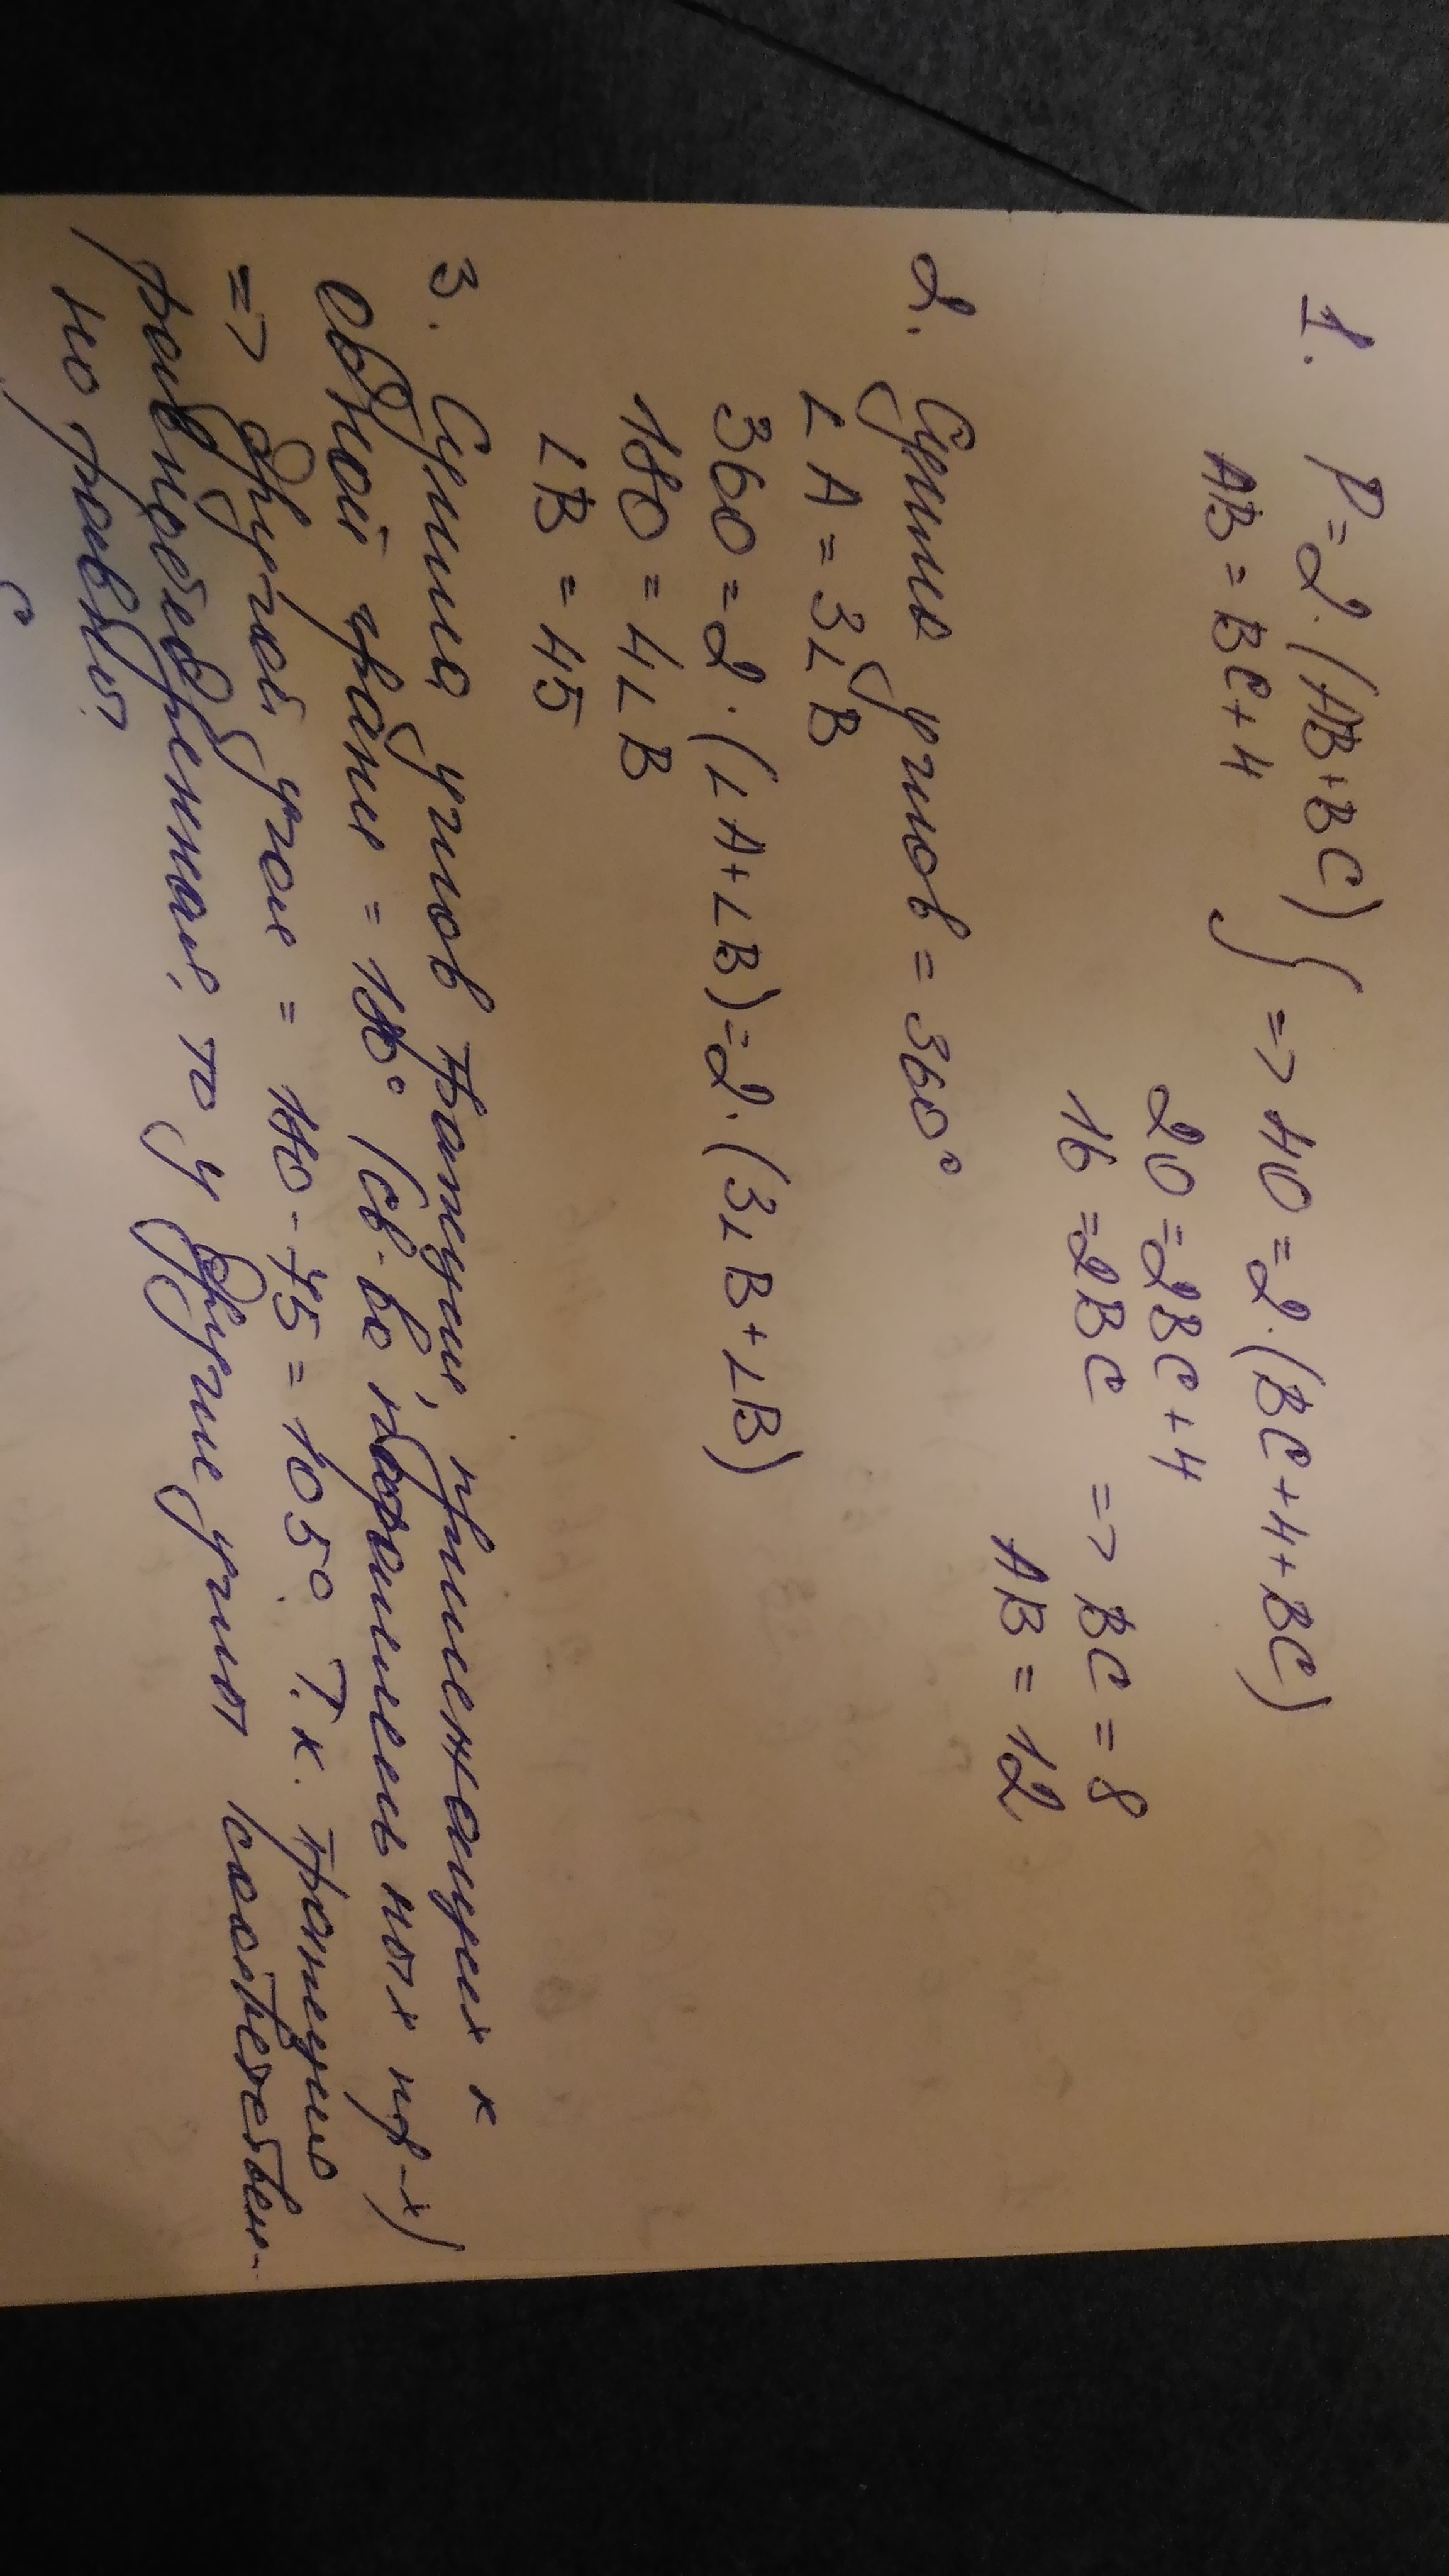 1. P=2·(AB+BC) } => 40=2·(BC+4+BC)
AB=BC+4
20=2BC+4
16=2BC => BC=8
AB=12
2. Сумма углов = 360°
∠A=3∠B
360=2·(∠A+∠B)=2·(3∠B+∠B)
180=4∠B
∠B=45
3. Сумма углов трапеции, прилежащих к
одной грани = 180° (св-во параллельных пр-х)
=> другой угол = 180-75=105°. Т.к. трапеция
равнобедренная, то и другие углы соответствен-
но равны.